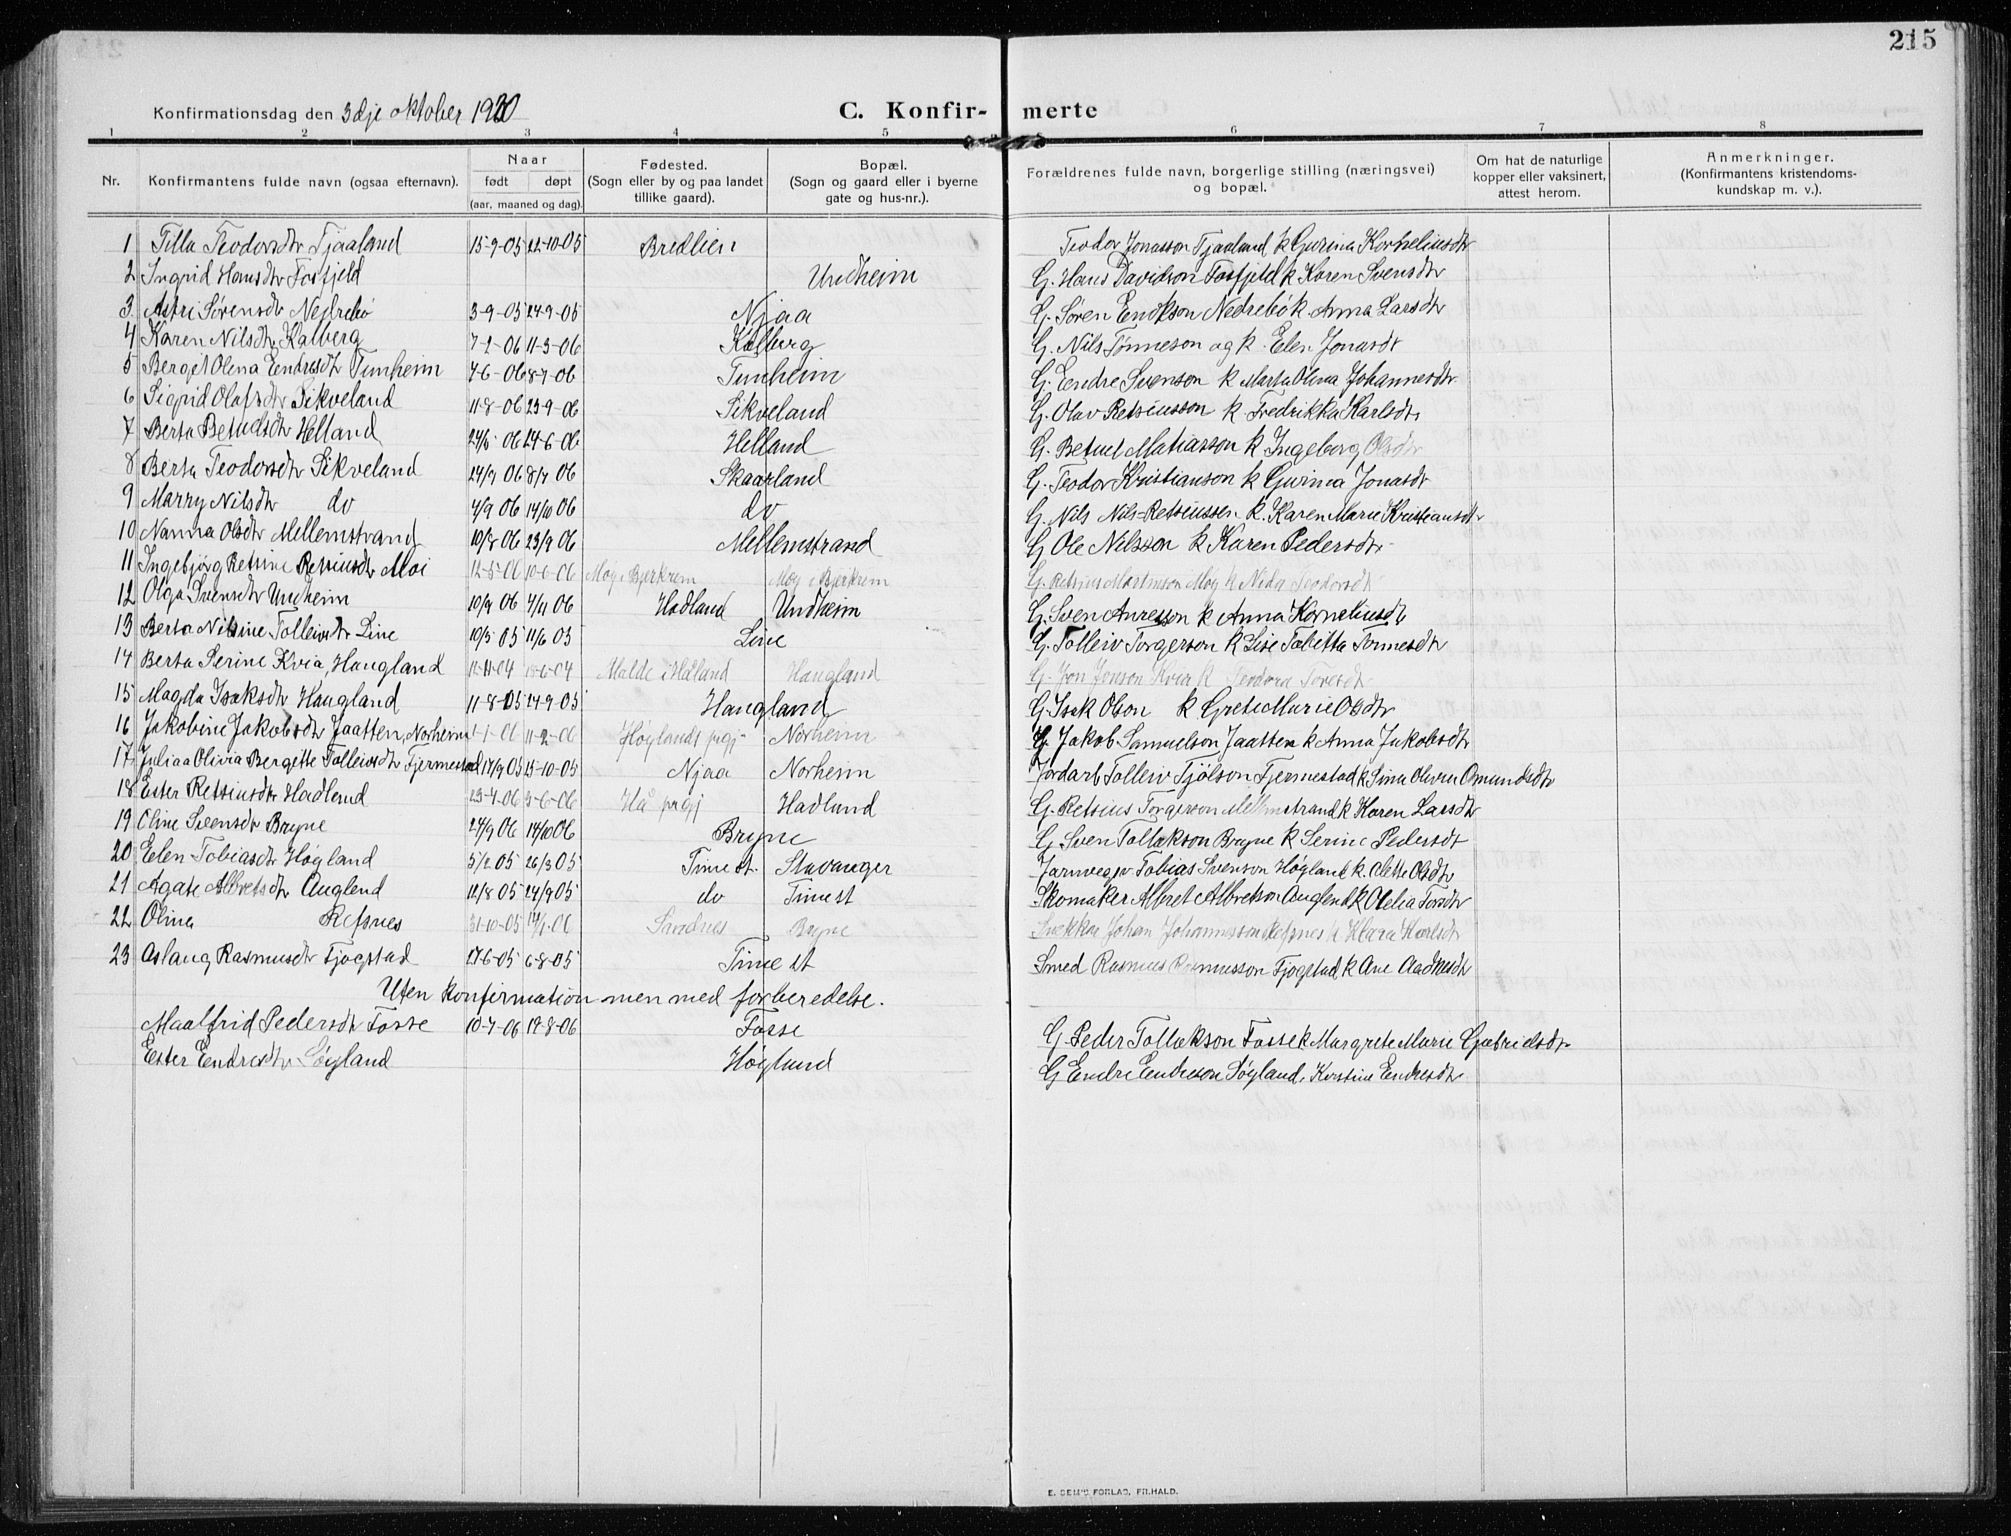 215
Konfirmationsdag den 3dje oktober 1920 C. Konfir- merte
1 2 3 4 5 6 7 8
Nr. Konfirmantens fulde navn (ogsaa efternavn). Naar født døpt (aar, maaned og dag). Fødested. (Sogn eller by og paa landet tillike gaard). Bopæl. (Sogn og gaard eller i byerne gate og hus-nr.). Forældrenes fulde navn, borgerlige stilling (næringsvei) og bopæl. Om hat de naturlige kopper eller vaksinert, attest herom. Anmerkninger. (Konfirmantens kristendoms- kundskap m. v.).
1 Tilla Teodorsdtr Tjaaland 15-9-05 22-10-05 Bredlien Teodor Jonasson Tjaaland k Gurina Kornelinsdtr
2 Ingrid Hansdtr Fosfjeld Undheim G. Hans Davidson Fosfjeld k Karen Svensdtr
3 Astri Sørensdtr Nedrebø 3-9-05 24-9-05 Njaa G. Søren Eriksson Nedrebø k. Anna Larsdtr
4 Karen Nilsdtr Kalberg 7-2-06 11-3-06 Kalberg G. Nils Tønneson og k. Elen Jonasdt
5 Berget Olena Endresdtr Tunheim 7-6-06 8-7-06 Tunheim G. Endre Svenson k Marta Olina Johannesdtr
6 Sigrid Olafsdtr Sikveland 11-8-06 23-9-06 Sikveland G. Olav Retsiusson k Fredrikka Karlsdtr
7 Berta Betuelsdtr Helland 24/5 06 24-6-06 Helland G. Betuel Matiasson k Ingeborg Olsdtr
8 Berta Teodorsdtr Sikveland 8/7 06 Skaarland G. Teodor Kristianson k Gurina Jonasdt
9 Marry Nilsdtr do 4/9 06 14/10 06 do G. Nils Nils-Retsiussen k. Karen Marie Kristiansdtr
10 Nanna Olsdtr Mellemstrand 10/8 06 23/9 06 Mellemstrand G Ole Nilsson k Karen Pedersdtr
11 Ingebjørg Retsine Retsiusdtr Moi 12-5-06 10-6-06 Moy i Bjerkrem Moy i Bjerkrem G. Retsius Martinson Moy k Nida Teodorsdt
12 Olga Svensdtr Undheim 10/9 06 4/11 06 Hadland Undheim G. Sven Anresson k Anna Kornelinsdtr
13 Berta Nilsine Tolleivsdtr Line 19/5 05 11/6 05 Line G. Tolleiv Torgerson k Lise Tabitta Tønnesdtr
14 Berta Serine Kvia, Haugland Malde i Håland Haugland G. Jon Jonson Kvia k Teodora Toresdtr
15 Magda Isaksdtr Haugland 11-8-05 24-9-05 Haugland G. Isak Olson k Grete Marie Olsdtr
16 Jakobine Jakobsdtr Jaatten, Norheim 1-1-06 11-2-06 Høylands prgj Norheim G. Jakob Samuelson Jaatten k Anna Jakobsdtr
17 Juliaa Olivia Bergitte Tolleivsdtr Fjermestad 17/9 05 15-10-05 Njaa Norheim Jordarb Tolleiv Tjølson Fjermestad k Sina Olivia Omundsdtr
18 Ester Retsiusdtr Hadland 23-4-06 3-6-06 Hå prgj Hadland G. Retsius Torgerson Mellmstrand k Karen Larsdtr
19 Oline Svensdtr Bryne 24/9 06 14/10 06 Bryne G Sven Tollakson Bryne k Serine Pedersdt
20 Elen Tobiasdtr Høyland 5/2 05 26/3 05 Time st. Stavanger Jarnvegsv Tobias Svenson Høyland k. Olette Olsdtr
21 Agate Albretsdtr Auglend 12/8 05 24/9 05 do Time st Skomaker Albret Albretson Auglend k Otelia Torsdtr
22 Olina Refsnes 31-10-05 Sandnes Bryne Snekker Johan Johannesson Refsnes k Klara Karlsdt
23 Aslaug Rasmusdtr Fjogstad 17-6-05 6-8-05 Time st Smed Rasmus Rasmusson Fjogstad k Ane Aadnesdtr
Uten konfirmation men med forberedelse.
Maalfrid Pedersdtr Fosse 10-7-06 19-8-06 Fosse G. Peder Tollakson Fosse k Margrete Marie Gabrielsdtr
Ester Endresdtr Søyland Høyland G Endre Endreson Søyland, Kirstine Endresdtr
E. SEM'S FORLAG, FR.HALD.